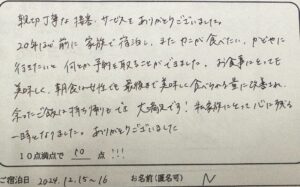 親切丁寧な接客、サービスをありがとうございました。
20年ほど前に家族で宿泊し、またカニが食べたい、かどやに
行きたいと何とか予約を取ることができました。お食事はとても
美味しく、朝食は女性でも最後まで美味しく食べられる量に改善され、
余ったご飯は持ち帰りもでき大満足です！私家族にとって心に残る
一時となりました。ありがとうございました
10点満点で 10 点!!!
ご宿泊日 2024.12.15〜16 お名前(匿名可) N